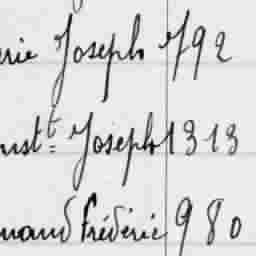 erie Joseph 792
nst^t= Joseph 1313
nand Frédéric 980